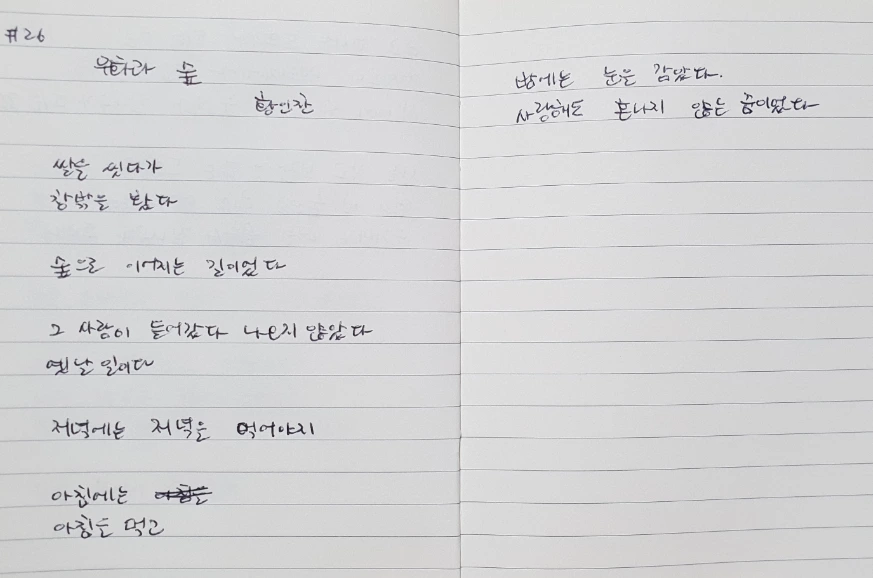 #26
유체과 숲
황인찬
쌀을 씻다가
창밖을 봤다
숲으로 이어지는 길이었다
그 사람이 들어갔다 나오지 않았다
옛날 일이다
저녁에는 저녁을 먹어야지
아침에는
아침을 먹고
밤에는 눈을 감았다.
사랑해도 혼나지 않는 꿈이었다